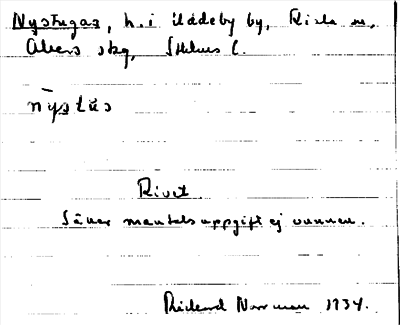 Nystugas, h. i Ådeby by, Risle sn,
Åkers skg, Sthlms l.
nȳstŭs
Rivet.
Säker mantalsuppgift ej vunnen.
Rickard Norrman 1934.